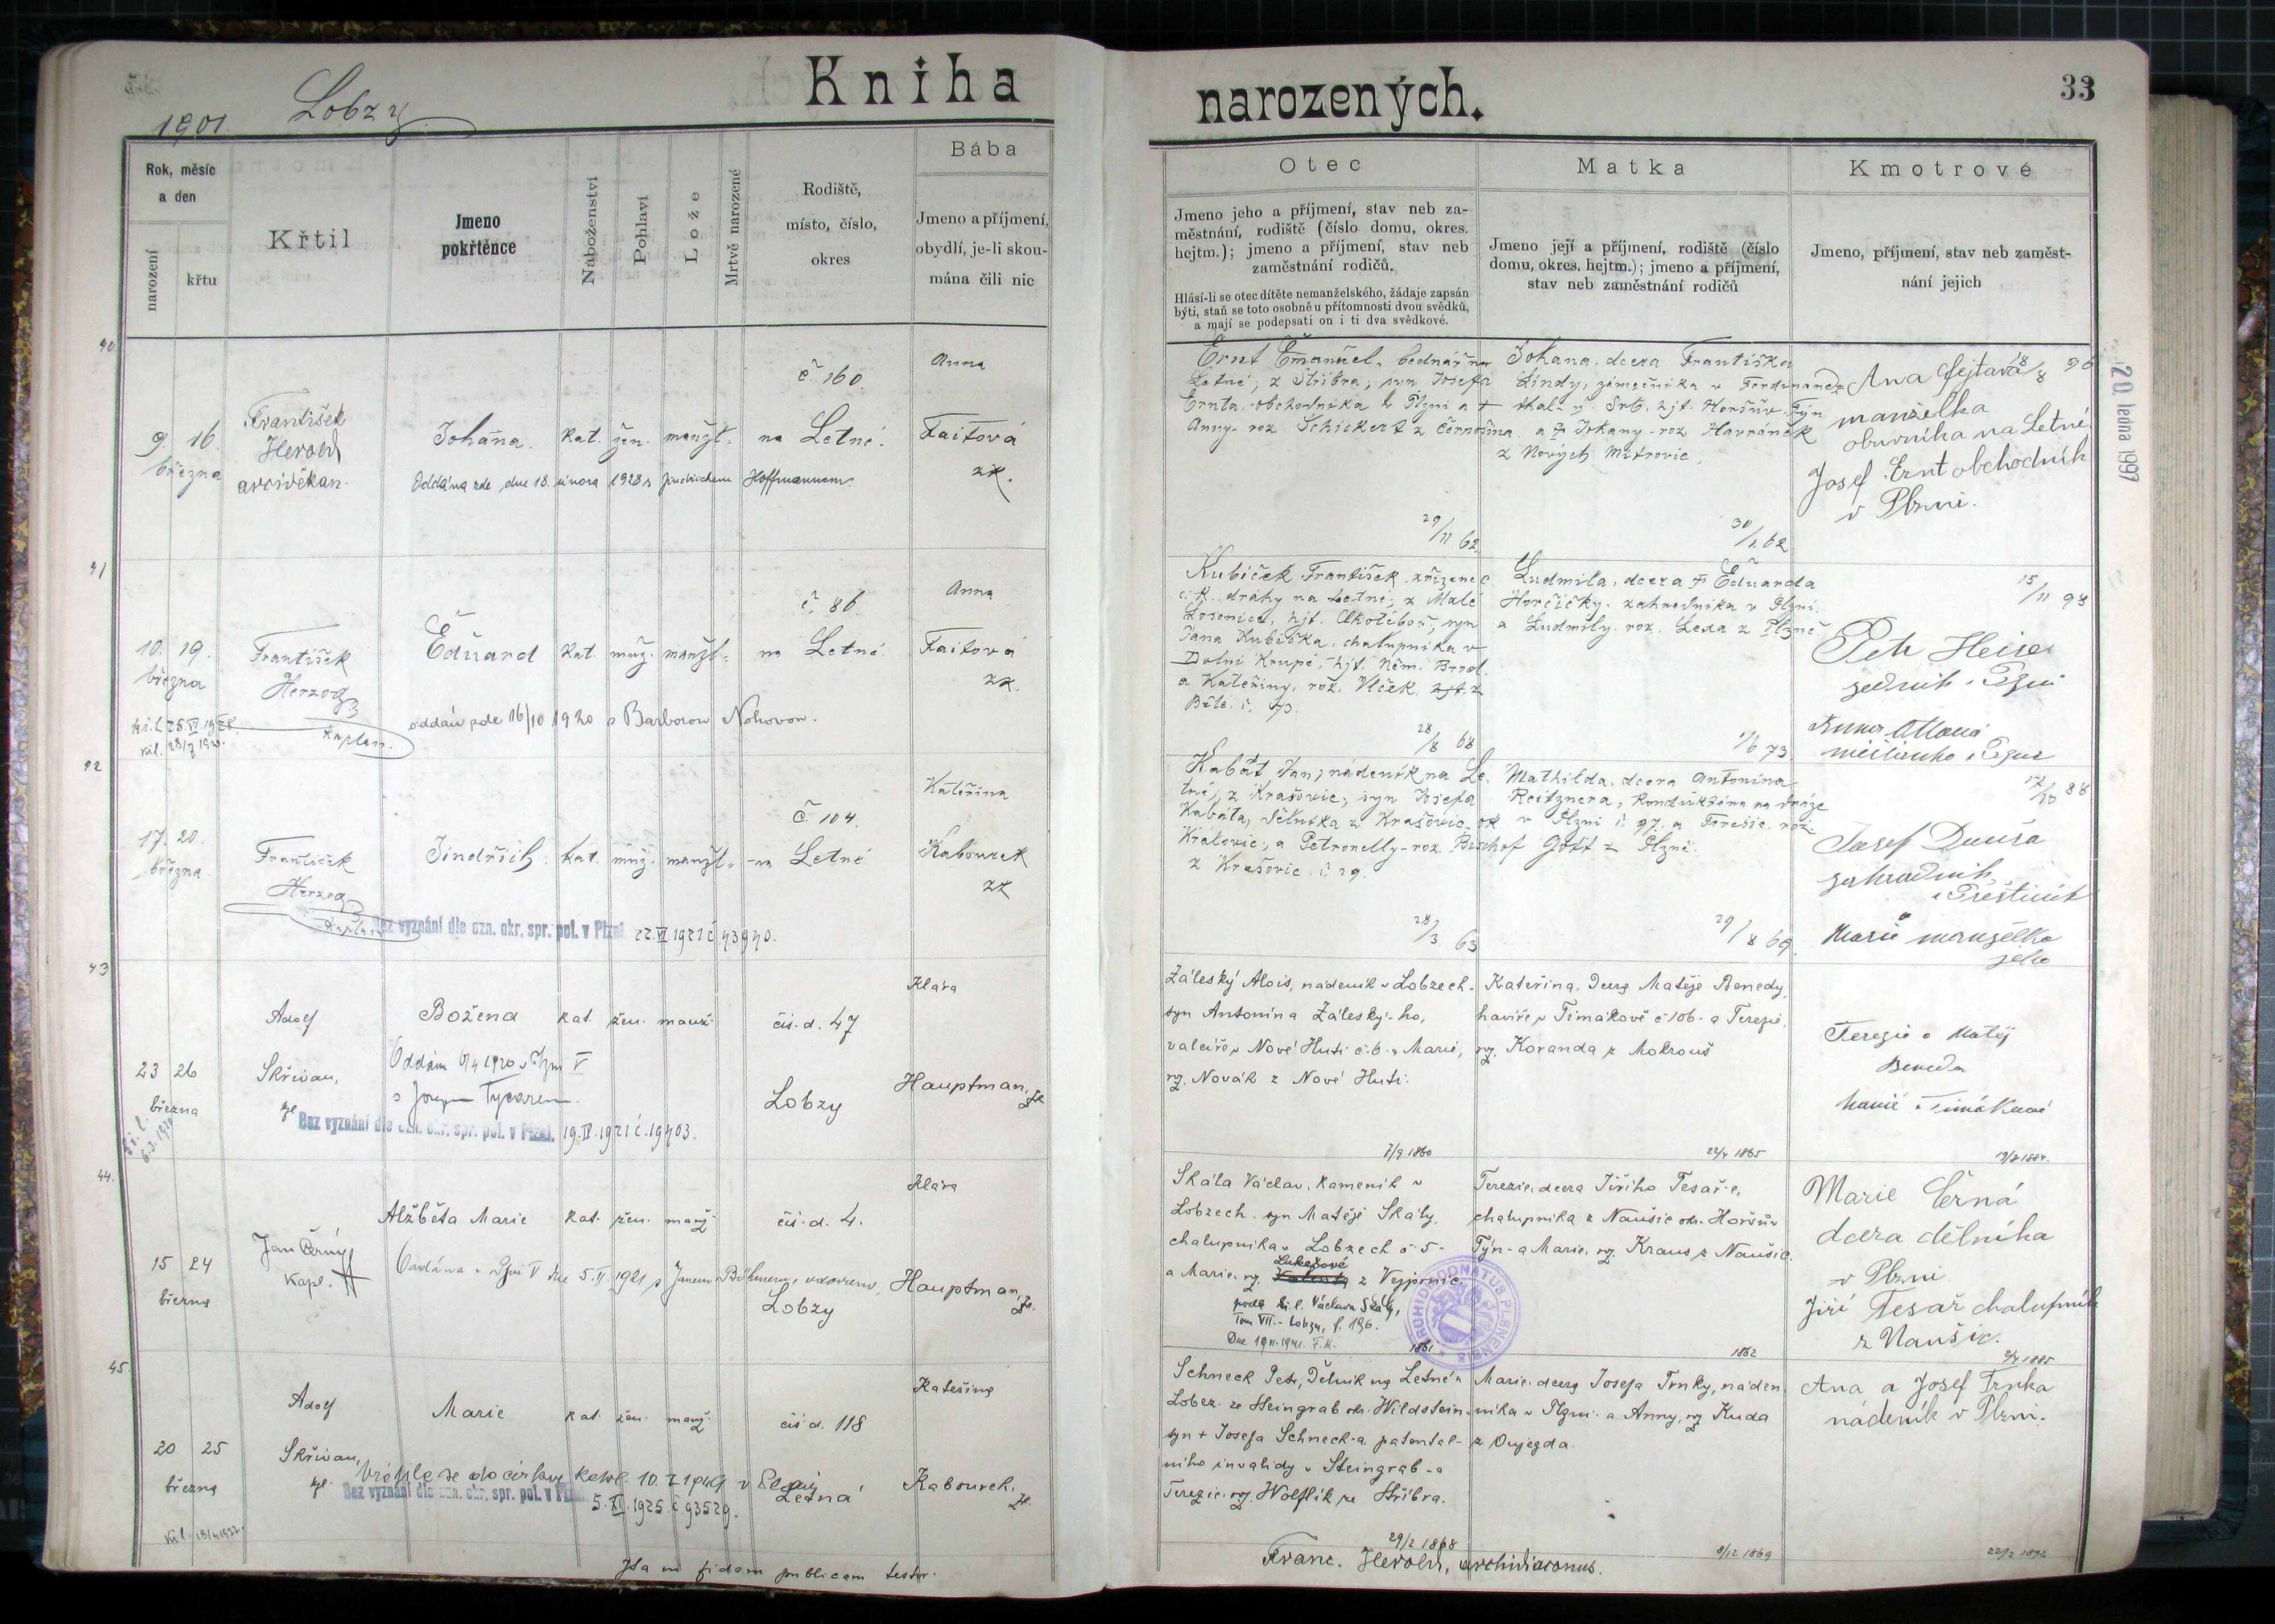 Kniha
narozených.
33
1901.
Lobzy
Rok, měsíc
a den
narození
křtu
Křtil
Jmeno
pokřtěnce
Náboženství
Pohlaví
Lože
Mrtvě narozené
Rodiště,
místo, číslo,
okres
Bába
Jmeno a příjmení,
obydlí, je-li skou-
mána čili nic
Otec
Jmeno jeho a příjmení, stav neb za-
městnání, rodiště (číslo domu, okres.
hejtm.); jmeno a příjmení, stav neb
zaměstnání rodičů.
Hlásí-li se otec dítěte nemanželského, žádaje zapsán
býti, staň se toto osobně u přítomnosti dvou svědků,
a mají se podepsati on i ti dva svědkové.
Matka
Jmeno její a příjmení, rodiště (číslo
domu, okres. hejtm.); jmeno a příjmení,
stav neb zaměstnání rodičů
Kmotrové
Jmeno, příjmení, stav neb zaměst-
nání jejich
20. ledna 1997
40
9. 16.
března
František
Herold
arciděkan.
Johana. kat. žen. manžl.
Oddána zde dne 18. února 1928 s Jindřichem Hoffmannem.
č. 160.
na Letné.
Anna
Faitová
zk.
Ernt Emanuel, bednář na
Letné, z Stříbra, syn Josefa
Ernta, obchodníka v Plzni a
Anny roz. Schickert z Černošína.
29/11 62
Johana, dcera Františka
Lindy, zámečníka v Ferdinandz
skal. y. Srb. hjt. Horšův. Týn
a Johany roz. Havránek
z Nových Mitrovic.
30/1 62
Ana Fejtavá 18/8 96
manželka
obuvníka na Letné
Josef Ernt obchodník
v Plzni.
41
10. 19.
března
František
Herzog
kaplan.
Eduard kat. muž. manžl.
oddán zde 16/10 1920 s Barborou Nohovou.
č. 86
na Letné
Anna
Faitová
zk.
Kubíček František, zřízenec
c. k. dráhy na Letné, z Malé
Losenice, hjt. Chotěboř, syn
Jana Kubíčka, chalupníka v
Dolní Krupé, hjt. Něm. Brod.
a Kateřiny, roz. Vlček z
Bělé č. 73.
28/8 68
Ludmila, dcera † Eduarda
Horčičky, zahradníka v Plzni
a Ludmily roz. Lexa z Plzně
1/6 73
15/11 98
Petr Heise
Anna
42
17. 20.
března
František
Herzog
kaplan
Jindřich kat. muž. manžl.
Bez vyznání dle ozn. okr. spr. pol. v Plzni 22.VI.1921 č. 43940.
č. 104.
na Letné
Kateřina
Kabourek
zk
Kabát Jan, nádeník na Le-
tné, z Krašovic, syn Josefa
Kabáta, dělníka z Krašovic, ok
Kralovic, a Petronelly roz. Bischof
z Krašovic č. 29.
28/3 63
Mathilda, dcera Antonína
Reitznera, konduktéra na dráze
v Plzni č. 97. a Terezie roz.
Gött z Plzně.
29/8 69.
17/10 88
Josef Duša
zahradník
v Přešticích
Marie manželka
jeho
43
23 26
března
Adolf
Skřivan,
Božena kat. žen. manž.
Oddána 6/4 1920 v Plzni V
s Josefem Tycarem.
Bez vyznání dle ozn. okr. spr. pol. v Plzni. 19.IV.1921 č. 19403.
čís. d. 47
Lobzy
Klára
Hauptman,
Záleský Alois, nádeník v Lobzech,
syn Antonína Záleský-ho,
valcíře v Nové Huti č. 6. a Marie,
roz. Novák z Nové Huti.
7/9 1860
Kateřina, dcera Matěje Benedy,
havíře v Timákově č 106 a Terezie
roz. Koranda z Mokrouš
22/4 1865
Terezie a Matěj
Beneda
havíř v Timákově
44.
15 24
března
Jan Černý
kapl.
Alžběta Marie kat. žen. manž.
Oddána v Plzni V dne 5.II.1921 s Janem Böhmem, vdovcem.
čís. d. 4.
Lobzy
Klára
Hauptman,
Skála Václav, kameník v
Lobzech, syn Matěje Skály,
chalupníka v Lobzech č 5
a Marie, roz. Lukešové z Vejprnic
podle kř. l. Václava Skály,
Tom VII. - Lobzy, f. 196.
1861
Terezie, dcera Jiřího Tesaře,
chalupníka z Naušic okr. Horšův
Týn a Marie, roz. Kraus z Naušic.
1862
ARCHIDIACONATUS PLSNENSIS
Marie Černá
dcera dělníka
v Plzni
Jiří Tesař chalupník
z Naušic.
45.
20 25
března
Adolf
Skřivan,
Marie kat. žen. manž.
Vrátila se do církve katol. 10.I.1949 v Plzni
Bez vyznání dle ozn. okr. spr. pol. v Plzni 5.XI.1925 č. 93529.
čís. d. 118
Letná
Kateřina
Kabourek.
Schneck Petr, dělník na Letné u
Lobez, ze Steingrab okr. Wildstein,
syn † Josefa Schneck-a, patental-
ního invalidy v Steingrab a
Terezie roz. Wolflik ze Stříbra.
29/2 1868
Marie, dcera Josefa Trnky, náden
níka v Plzni a Anny, roz Kuda
z Oujezda.
8/12 1869
Ana a Josef Trnka
nádeník v Plzni.
22/2 1892
Ita in fidem publicam testor.
Franc. Herold, archidiaconus.